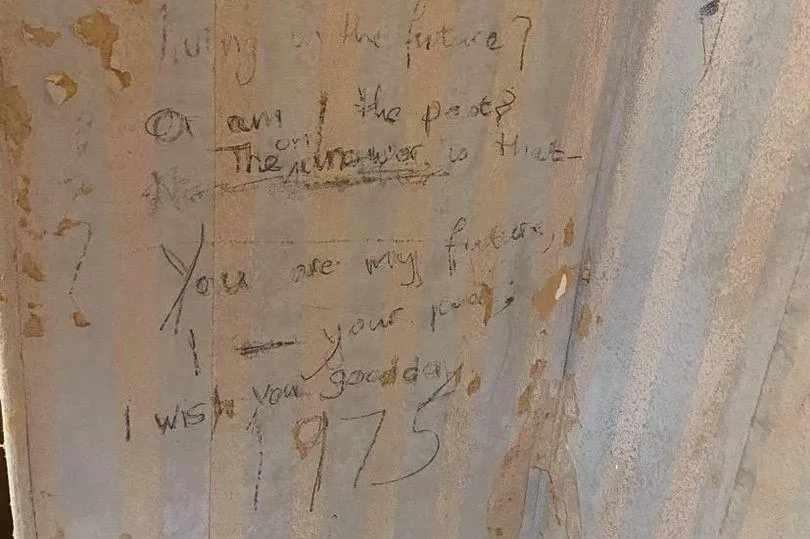 living in the future?
Or am I the past?
only
The answer is that
You are my future,
I your past;
I wish you good day.
1975